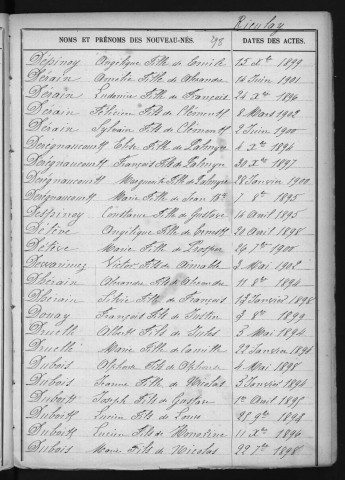 Rieulay
NOMS ET PRÉNOMS DES NOUVEAU-NÉS. DATES DES ACTES.
Dépinoy Angélique Fille de Emile 15 Xbre 1899
Dérain Amélie Fille de Alexandre 14 Juin 1901
Dérain Ludovic Fils de François 24 Xbre 1894
Dérain Félicien Fils de Clément 8 Mars 1902
Dérain Sylvain Fils de Clément 2 Juin 1900
Dérégnaucourt Fille de Palmyre 4 Xbre 1894
Dérégnaucourt François Fils de Palmyre 30 Xbre 1897
Dérégnaucourt Marguerite Fille de Palmyre 28 Janvier 1900
Dérégnaucourt Marie Fille de Jean Bte 7 8bre 1895
Despinoy Constance Fille de Gustave 14 Avril 1895
Détève Angélique Fille de Ernest 20 Avril 1898
Détève Marie Fille de Prosper 26 7bre 1900
Dewarimez Victor Fils de Aimable 3 Mai 1901
Dhérain Alexandre Fils de 11 8bre 1894
Dhérain Silvie Fille de François 13 Janvier 1898
Douay François Fils de Justin 3 8bre 1899
Druelle Albert Fils de Jules 3 Mai 1894
Druelle Marie Fille de 22 Janvier 1894
Dubois Alphonse Fils de Alphonse 4 Mai 1898
Dubois Jeanne Fille de Nicolas 3 Janvier 1894
Duboitt Joseph Fils de Gustave 1er Avril 1895
Duboitt Lucien Fils de Louis 25 9bre 1894
Duboitt Lucien Fils de Honorine 11 Xbre 1896
Dubois Fils de Nicolas 22 7bre 1898